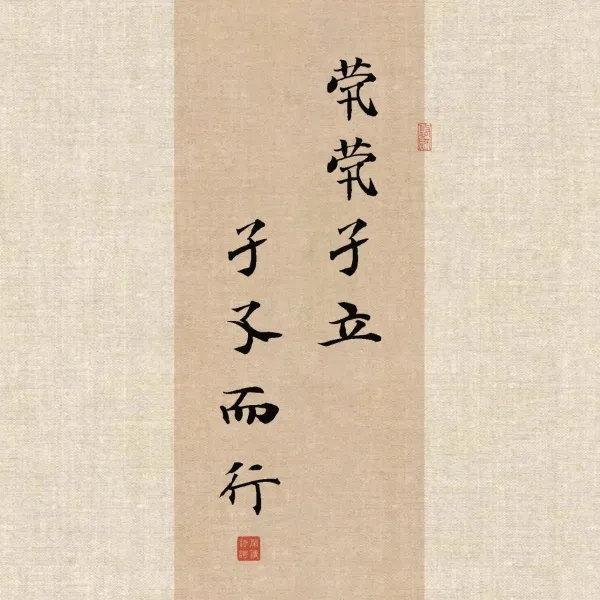 茕茕孑立
孑孓而行